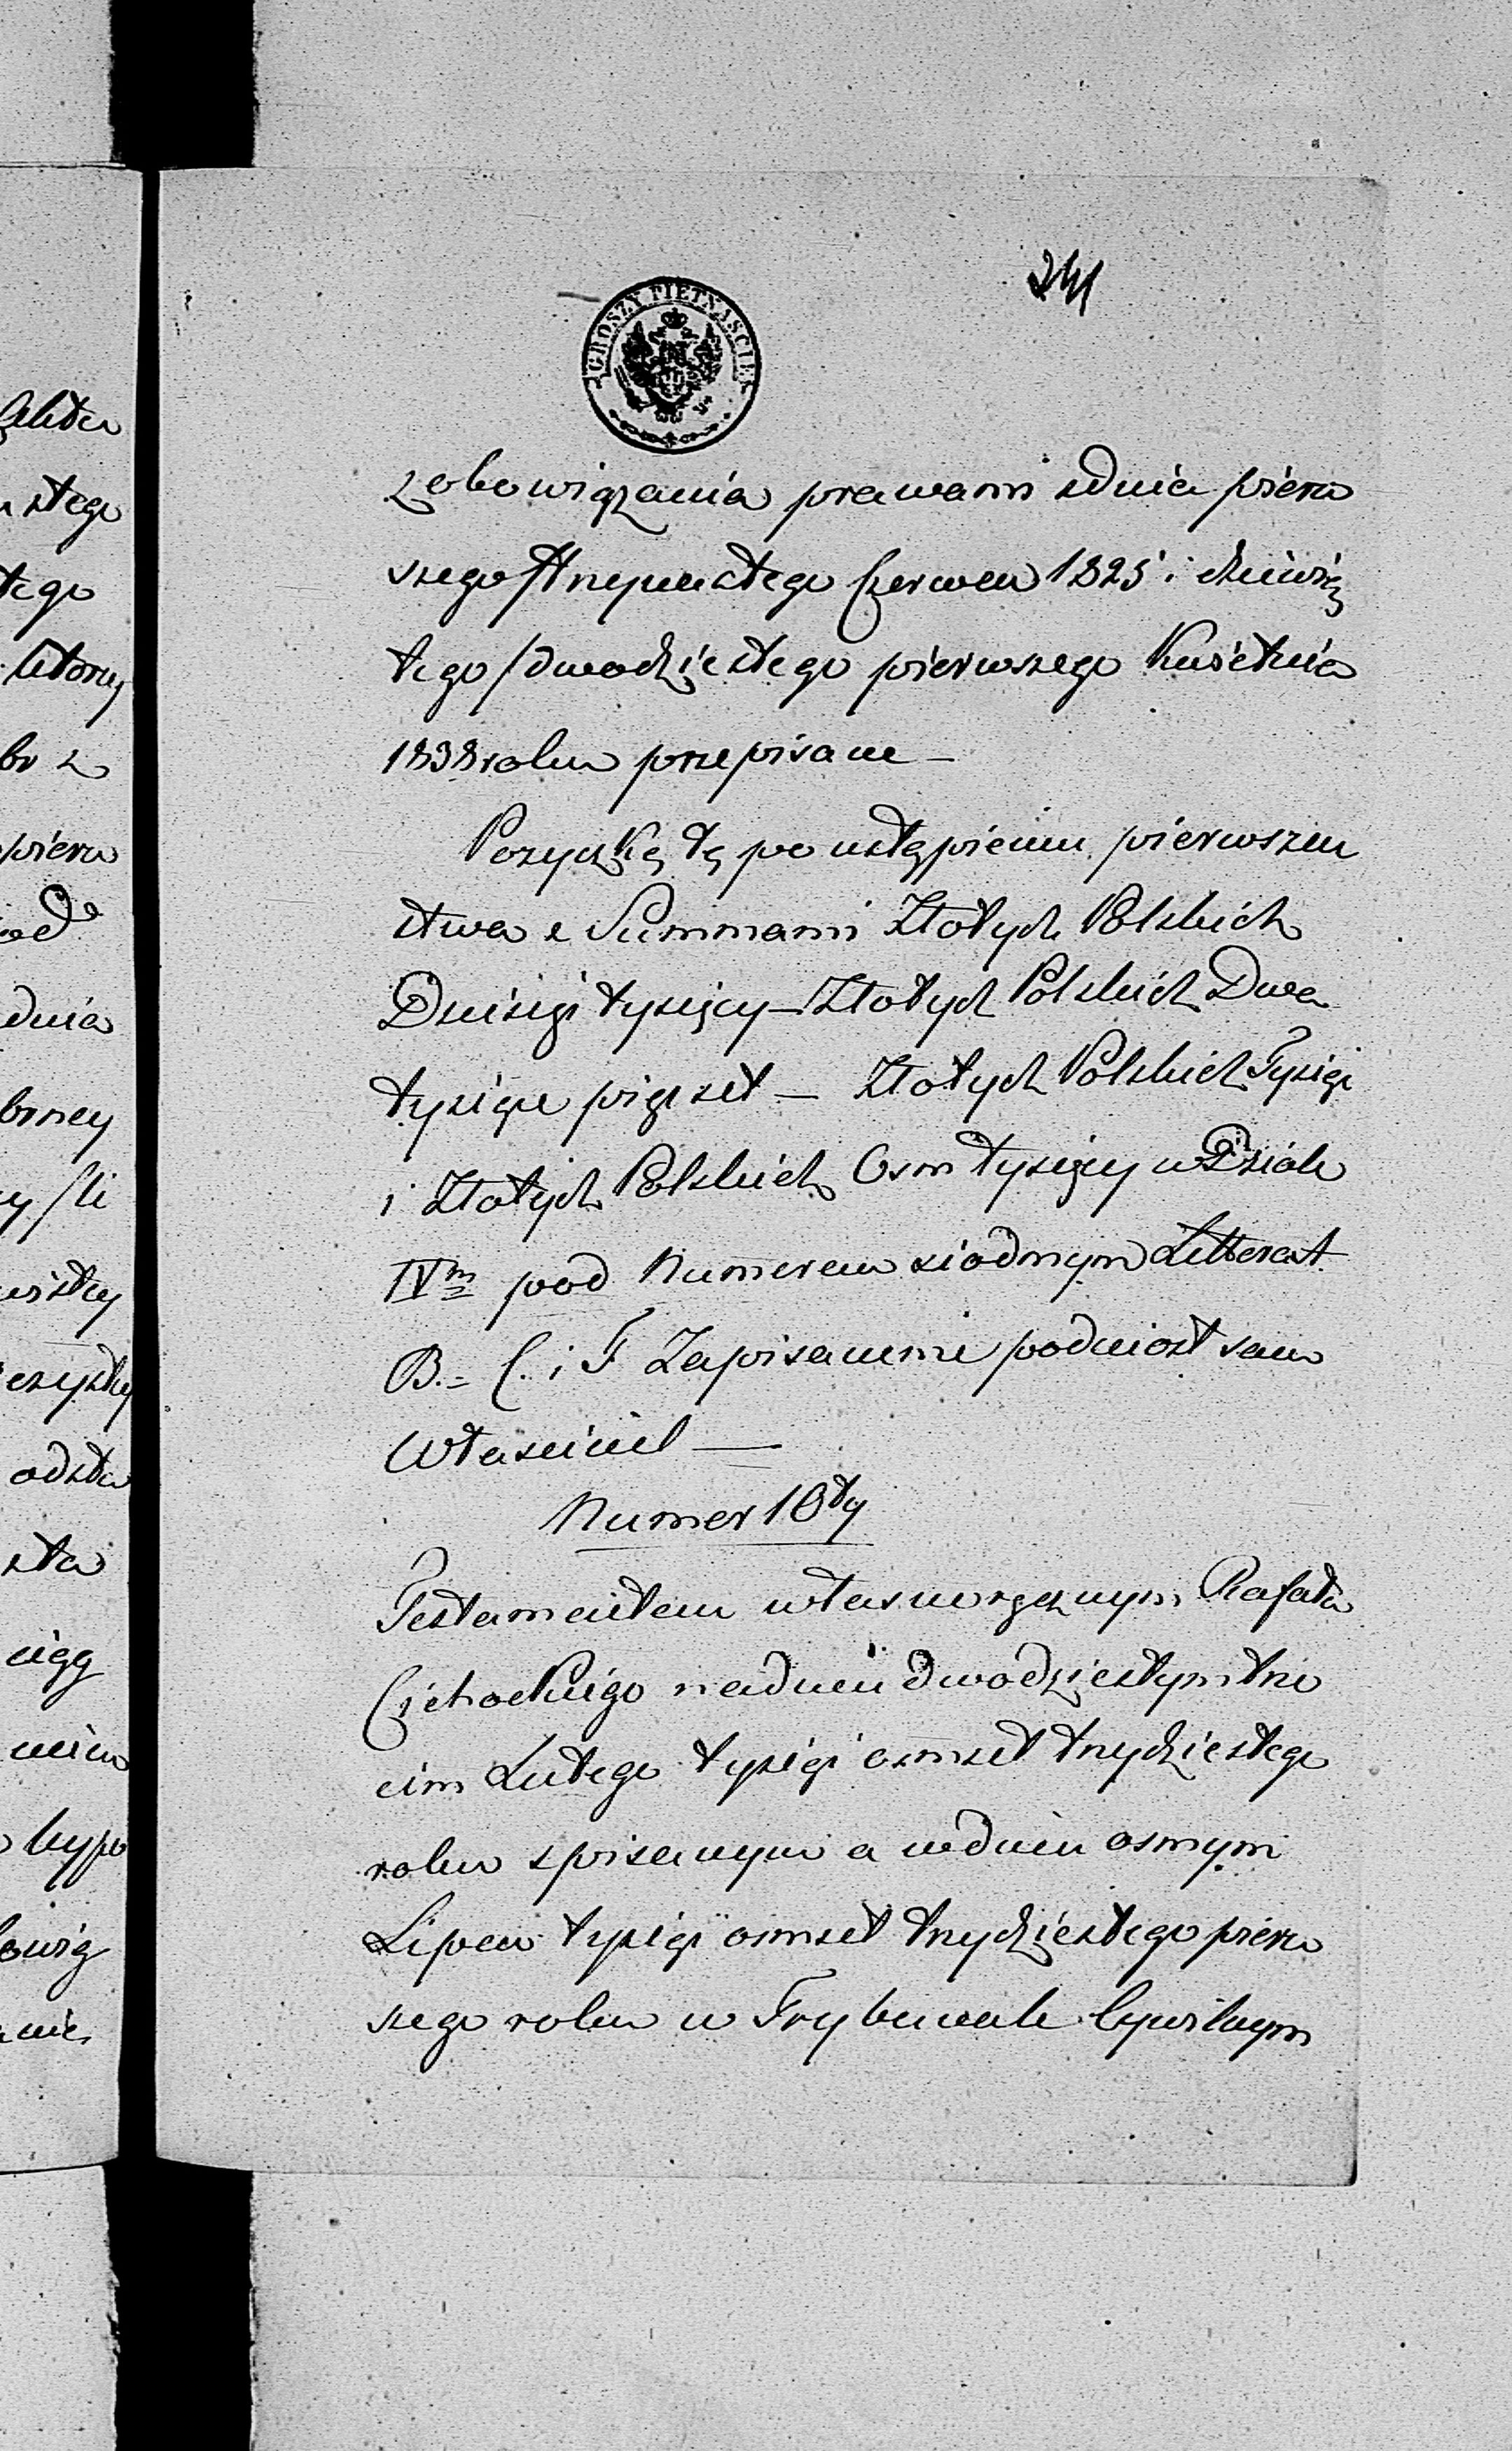 241
GROSZY PIETNAŚCIE
zobowiązania prawami zdnia pierw
szego/trzynastego Czerwca 1825 i dziewią
tego/dwudziestego pierwszego Kwietnia
1838 roku przepisane —
Pożyczkę tę po ustąpieniu pierwszeń
stwa z Summami Złotych Polskich
Dziesięć tysięcy — Złotych Polskich Dwa
tysiące pięćset — Złotych Polskich Tysiąc
i Złotych Polskich Osm tysięcy w Dziale
IVm pod Numerem siódmym Litterat
B. = C. i F Zapisanemi podniosł sam
Właściciel —
Numer 10ty
Testamentem własnoręcznym Rafała
Cichockiego na dniu dwudziestym trze
cim Lutego tysiąc ośmset trzydziestego
roku spisanym a w dniu osmym
Lipca tysiąc osmset trzydziestego pierw
szego roku w Trybunale Cywilnym